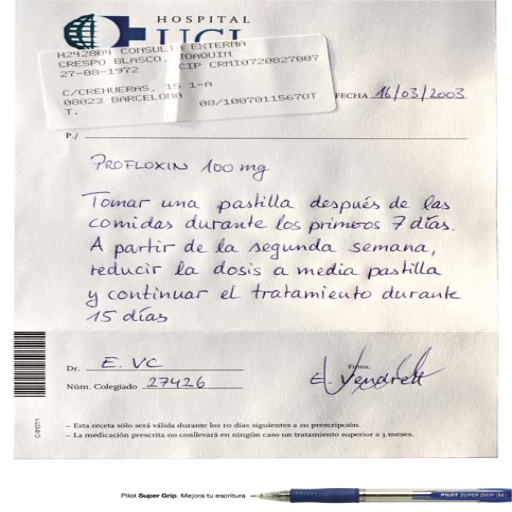 HOSPITAL
UCI
H242804 CONSULTA EXTERNA
CRESPO BLASCO, JOAQUIN
27-08-1972 CIP CRMI0720827007
C/CREHUERAS, 15 1-A
08023 BARCELONA 08/10070115670T
T.
FECHA 16/03/2003
P./
PROFLOXIN 100 mg
Tomar una pastilla después de las
comidas durante los primeros 7 días.
A partir de la segunda semana,
reducir la dosis a media pastilla
y continuar el tratamiento durante
15 días
Dr. E. VC
Firma.
Núm. Colegiado 27426
E. Vendrell
C-8107/1
– Esta receta sólo será válida durante los 10 días siguientes a su prescripción.
– La medicación prescrita no conllevará en ningún caso un tratamiento superior a 3 meses.
Pilot Super Grip. Mejora tu escritura
PILOT SUPER GRIP (M)